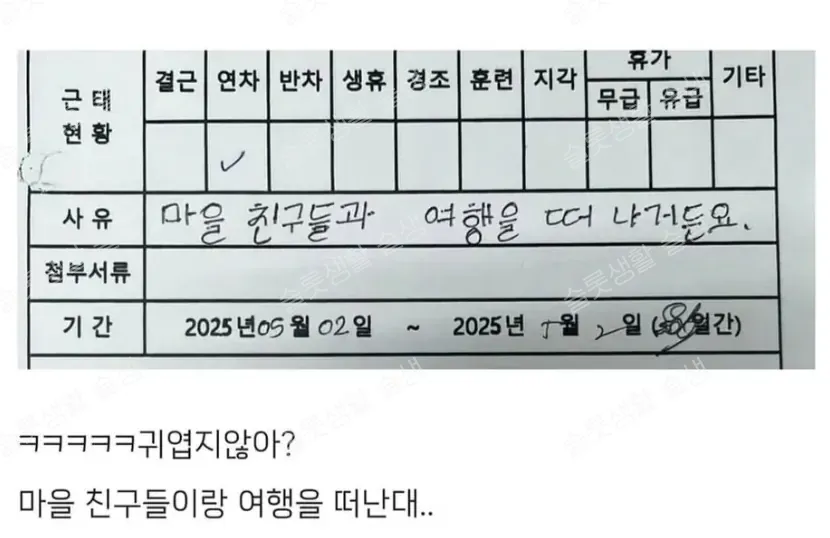 결근 연차 반차 생휴 경조 훈련 지각 휴가 기타
무급 유급
근 태
현 황
✓
사 유 마을 친구들과 여행을 떠 나거든요.
첨부서류
기 간 2025년 05월 02일 ~ 2025년 5월 2일 ( 일간)
ㅋㅋㅋㅋㅋ귀엽지않아?
마을 친구들이랑 여행을 떠난대..
슬롯생활 슬생